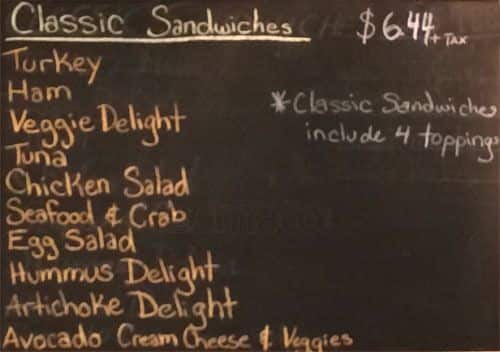 Classic Sandwiches $6.44 + TAX
Turkey
Ham
*Classic Sandwiches
include 4 toppings
Veggie Delight
Tuna
Chicken Salad
Seafood & Crab
Egg Salad
Hummus Delight
Artichoke Delight
Avocado Cream Cheese & Veggies